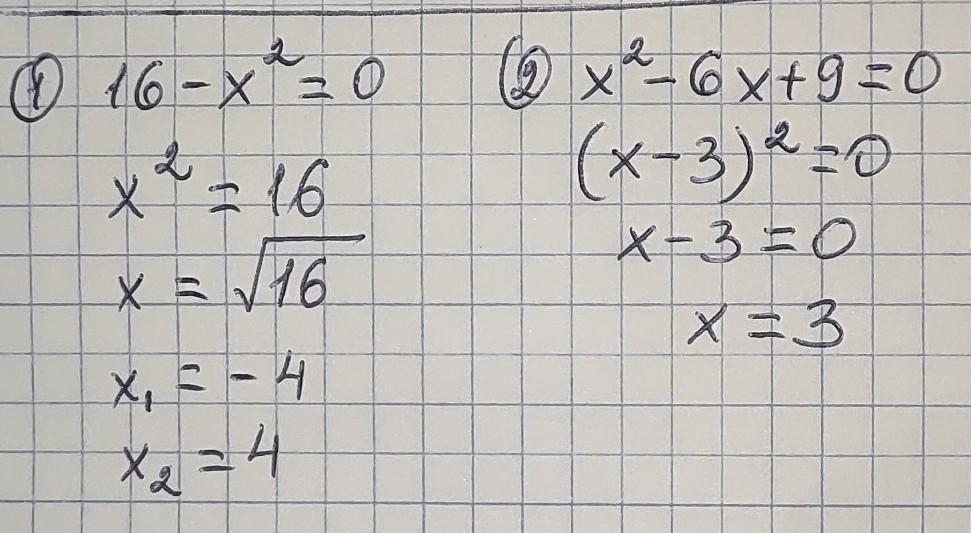 ① 16 - x² = 0
x² = 16
x = √16
x₁ = - 4
x₂ = 4
② x² - 6x + 9 = 0
(x - 3)² = 0
x - 3 = 0
x = 3